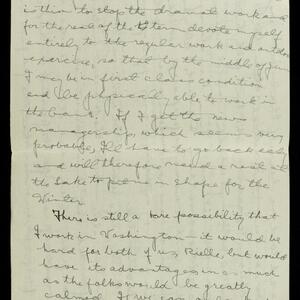 is then to stop the dramat work and
for the rest of the term devote myself
entirely to the regular work and outdoor
exercise, so that by the middle of June
I may be in first class condition
and be physically able to work in
the bank. If I get the news
managership, which seems very
probable, I'll have to go back early
and will therefore need a rest at
the Lake to put me in shape for the
Winter.
There is still a rare possibility that
I work in Washington – it would be
hard for both of us, Rielle, but would
have its advantages in as much
as the folks would be greatly
calmed. If we